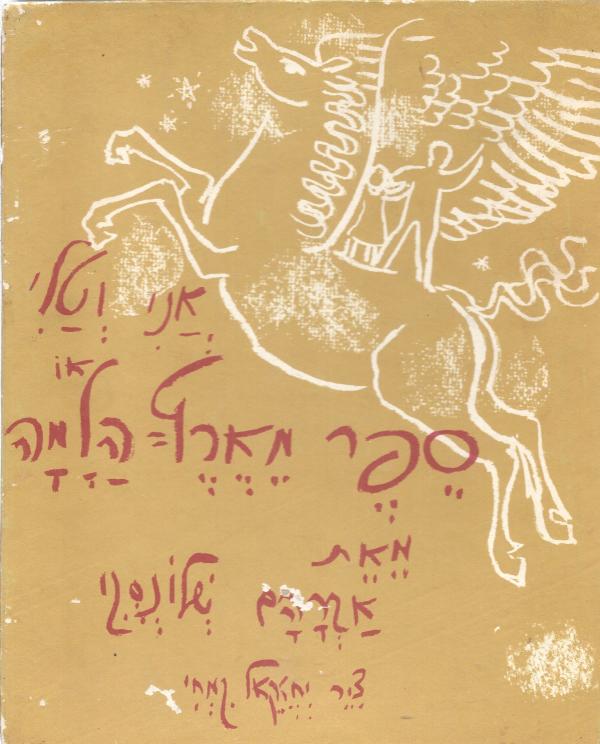 אֲנִי וְטַלִי
אוֹ
סֵפֶר מֵאֶרֶץ־הַלָמָה
מֵאֵת
אַבְרָהָם שְׁלוֹנְסְקִי
צִיֵר יְחֶזְקֵאל קִמְחִי